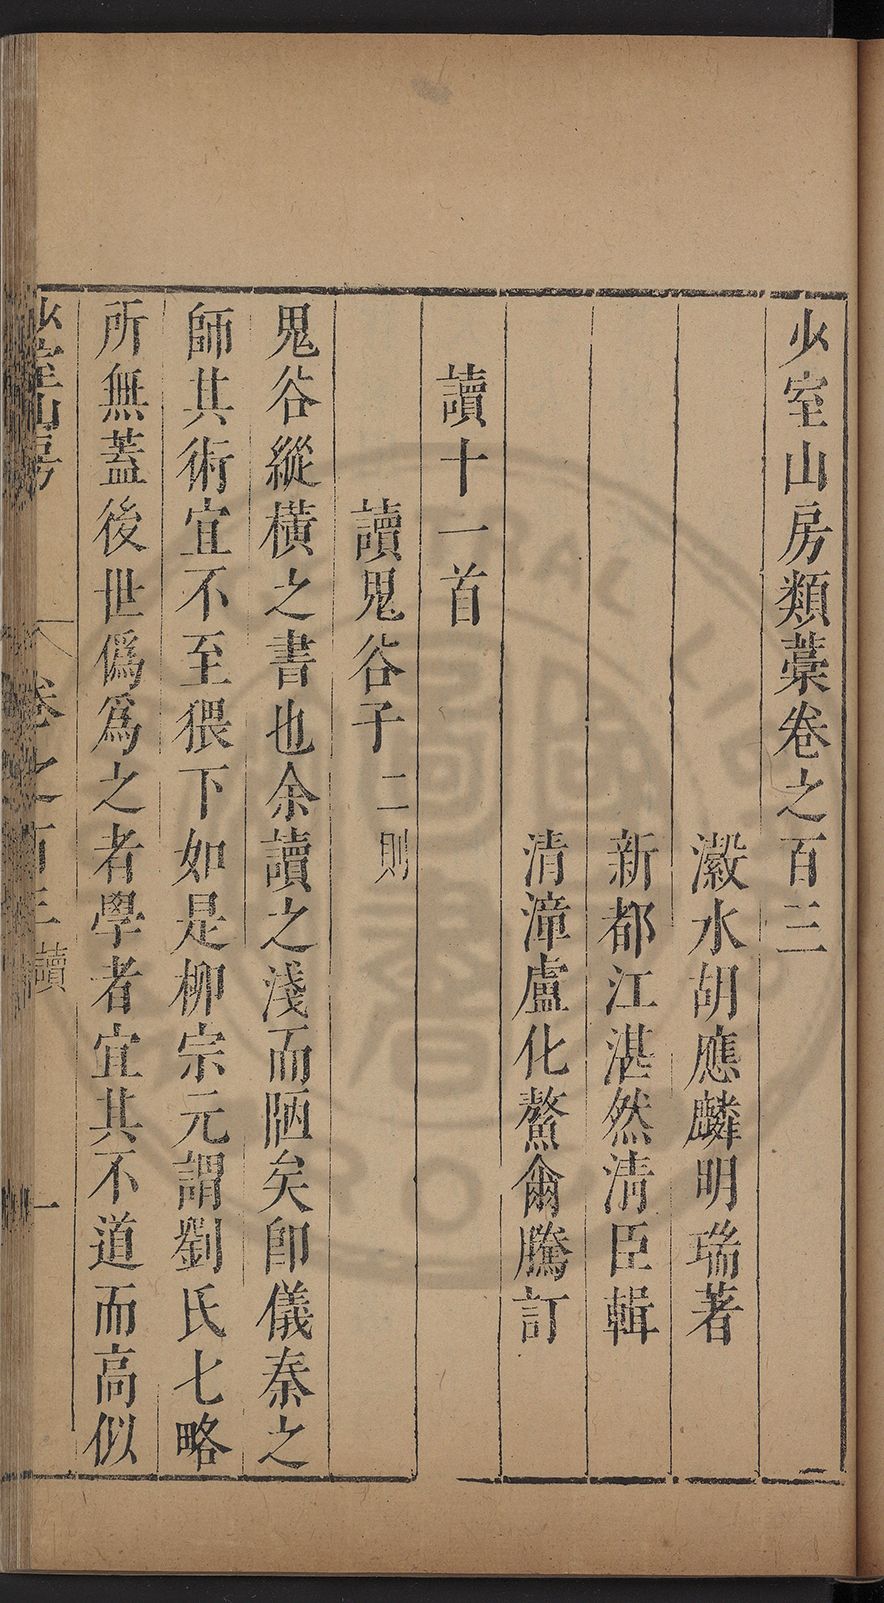 少室山房類藁卷之百三
瀫水胡應麟明瑞著
新都江湛然清臣輯
清漳盧化鰲爾騰訂
讀十一首
讀鬼谷子二則
鬼谷縱橫之書也余讀之淺而陋矣卽儀秦之
師其術宜不至猥下如是柳宗元謂劉氏七略
所無蓋後世僞爲之者學者宜其不道而高似
少室山房 卷之百三 讀 一